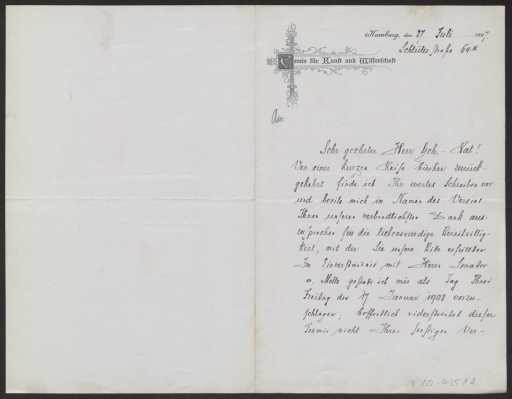 Hamburg, den 27 Juli 190
Schlüterstraße 64
Verein für Kunst und Wissenschaft
An
Sehr geehrter Herr Geh. Rat!
Von einer kurzen Reise hierher zurück-
gekehrt finde ich Ihr wertes Schreiben vor
und beeile mich im Namen des Vereins
Ihnen unseren verbindlichsten Dank aus-
zusprechen für die liebenswürdige Bereitwillig-
keit, mit der Sie unsere Bitte erfüllten
Im Einverständnis mit Herrn Senator
v. Melle gestatte ich mir als Tag Ihnen
Freitag den 17 Januar 1908 vorzu-
schlagen; hoffentlich widerstreitet dieser
Termin nicht Ihren sonstigen Ver-